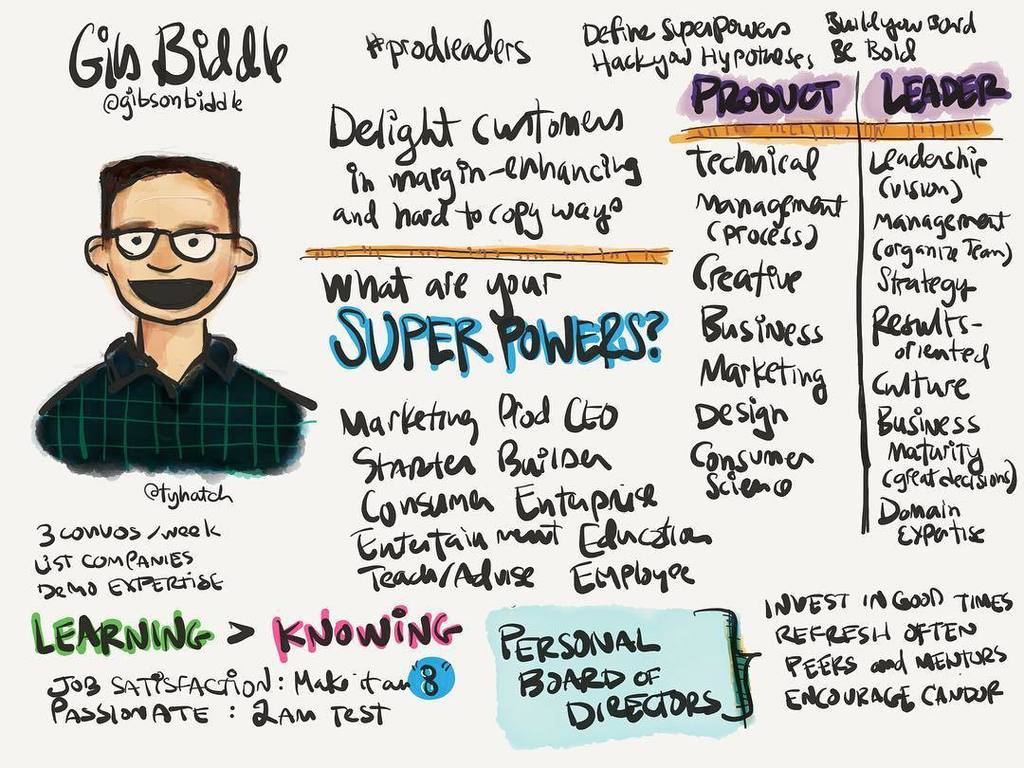 Gib Biddle
@gibsonbiddle
#prodleaders
Define Superpowers
Hack your Hypotheses
Build your Board
Be Bold
Delight customers
in margin-enhancing
and hard to copy ways
What are your
SUPER POWERS?
Marketing Prod CEO
Starter Builder
Consumer Enterprise
Entertainment Education
Teach/Advise Employee
PRODUCT
Technical
Management
(process)
Creative
Business
Marketing
Design
Consumer
Science
LEADER
Leadership
(vision)
Management
(organize Team)
Strategy
Results-
oriented
Culture
Business
Maturity
(great decisions)
Domain
Expertise
@tyhatch
3 convos/week
LIST COMPANIES
DEMO EXPERTISE
LEARNING > KNOWING
JOB SATISFACTION: Make it an "8"
PASSIONATE: 2AM TEST
PERSONAL
BOARD OF
DIRECTORS
INVEST IN GOOD TIMES
REFRESH OFTEN
PEERS and MENTORS
ENCOURAGE CANDOR